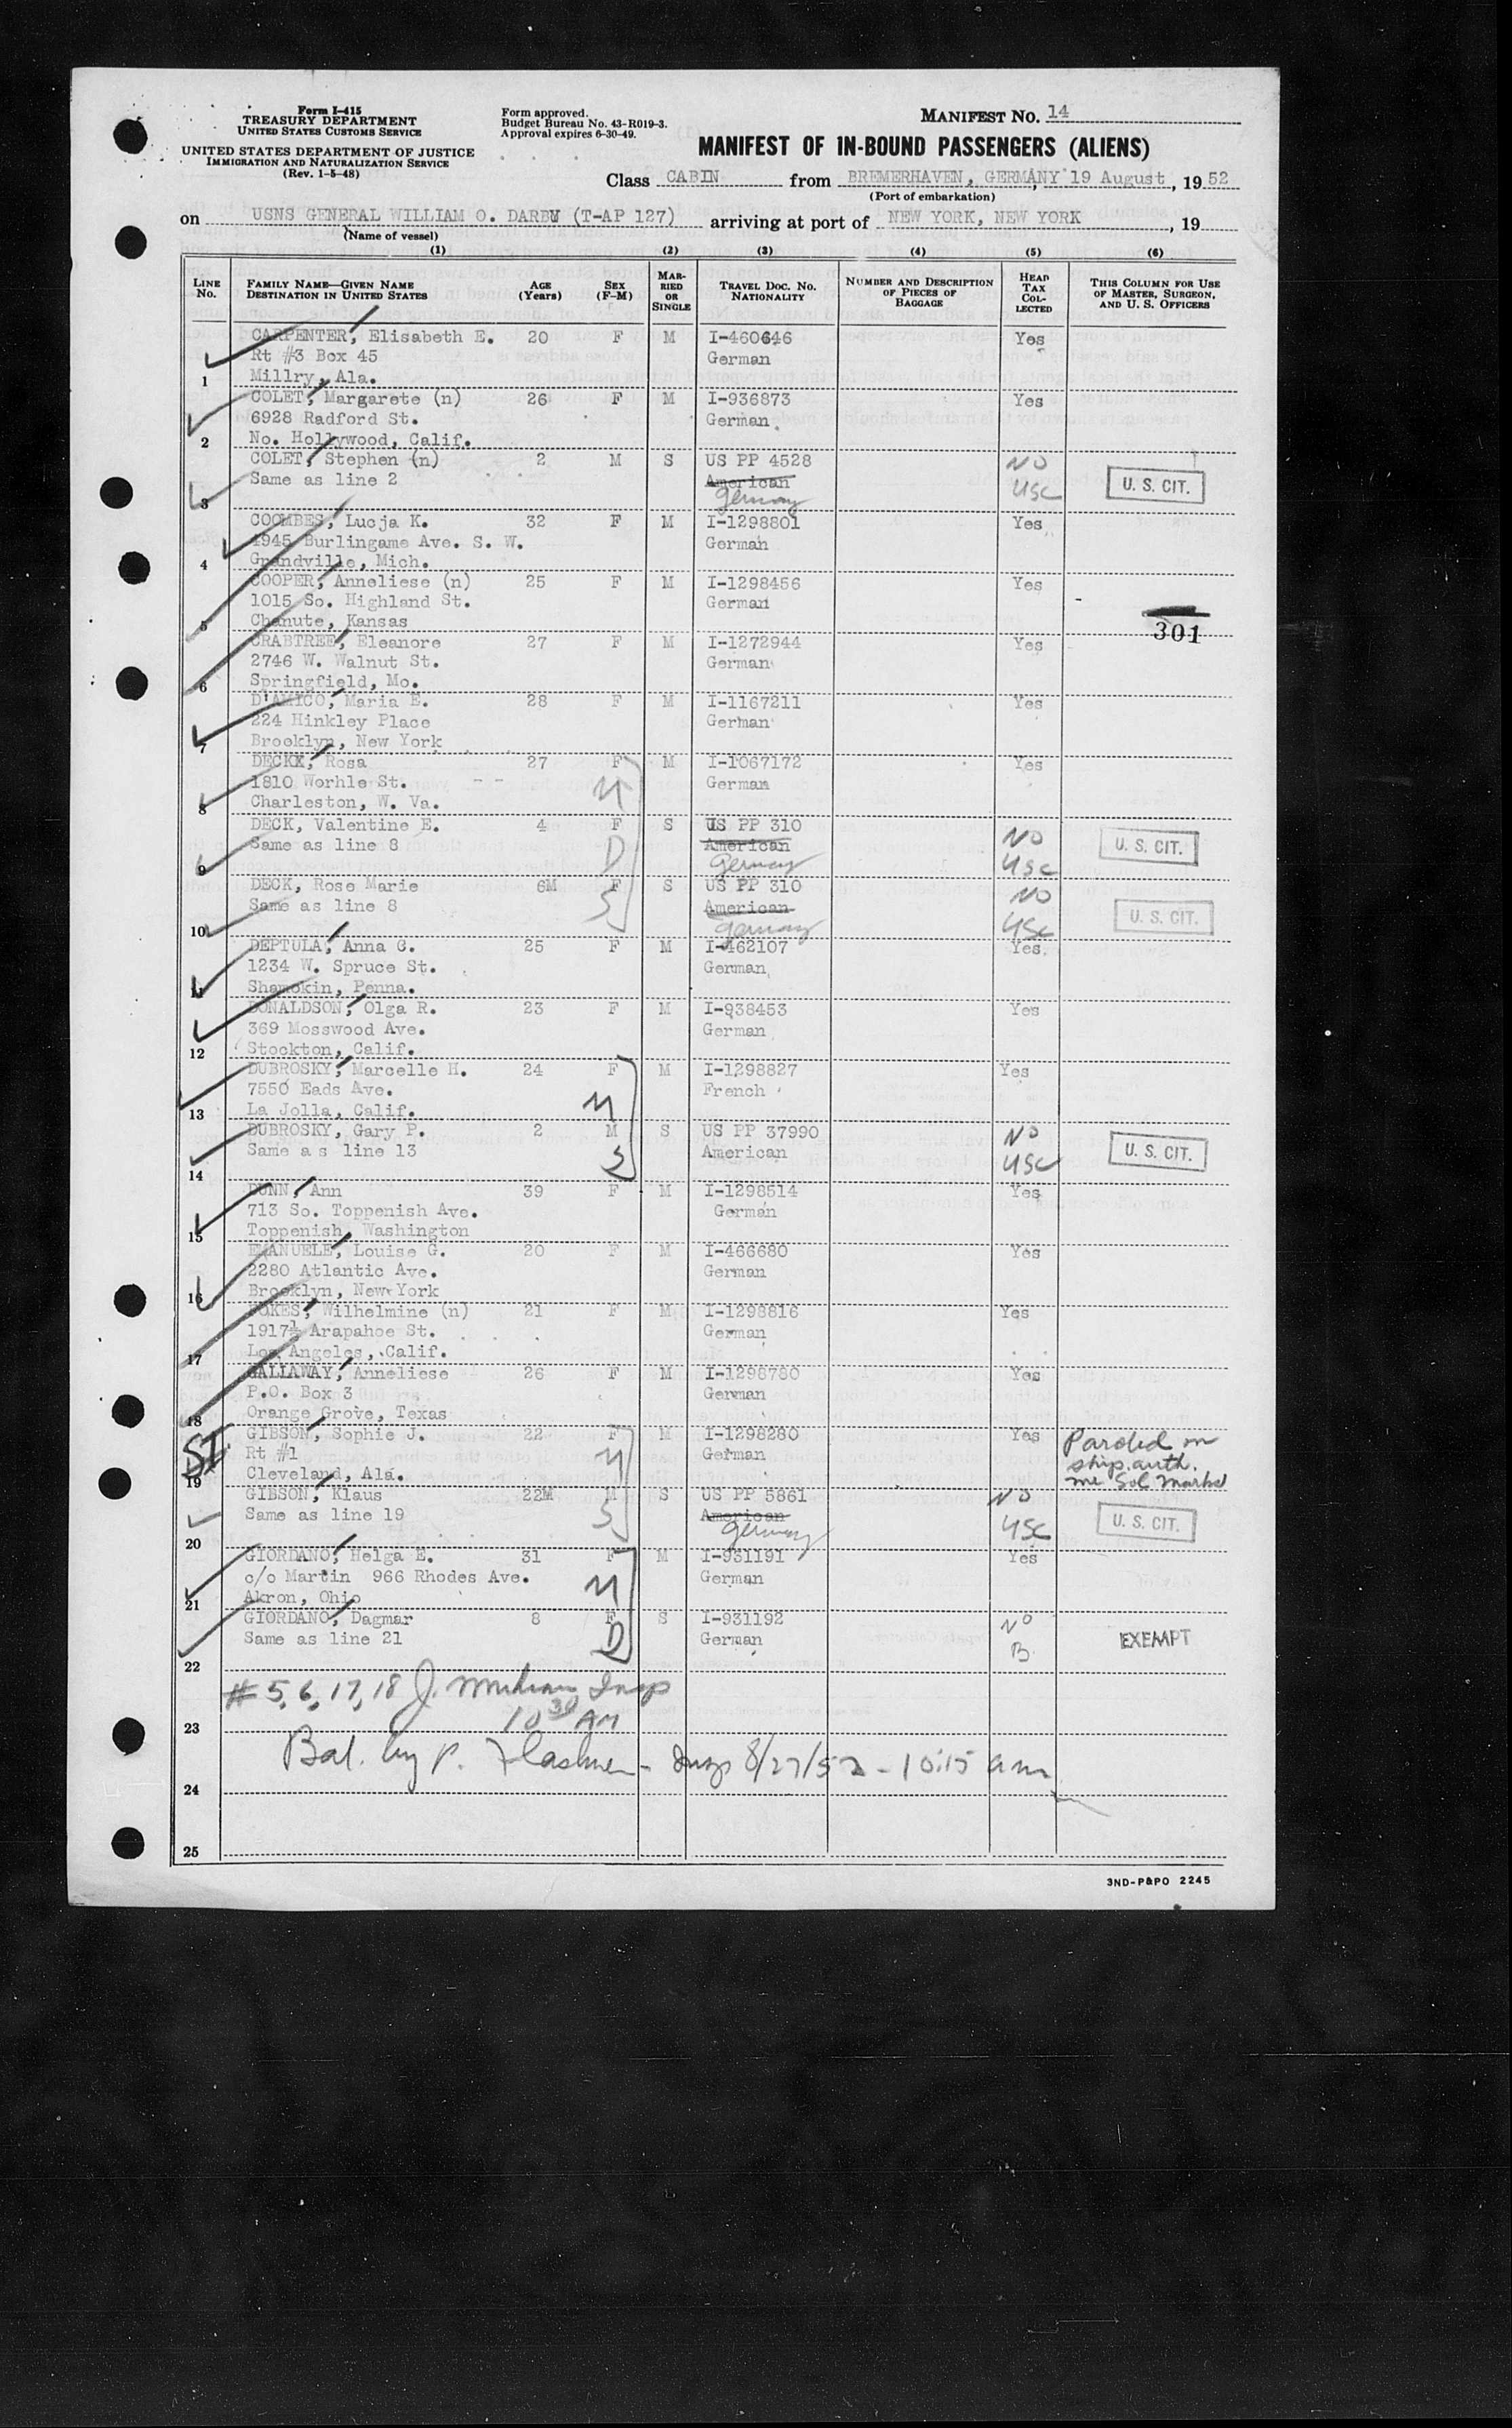 Form I-415
TREASURY DEPARTMENT
UNITED STATES CUSTOMS SERVICE
UNITED STATES DEPARTMENT OF JUSTICE
IMMIGRATION AND NATURALIZATION SERVICE
(Rev. 1-5-48)
Form approved.
Budget Bureau No. 43-R019-3.
Approval expires 6-30-49.
MANIFEST NO. 14
MANIFEST OF IN-BOUND PASSENGERS (ALIENS)
Class CABIN from BREMERHAVEN, GERMANY, 19 August, 1952
(Port of embarkation)
on USNS GENERAL WILLIAM O. DARBY (T-AP 127) arriving at port of NEW YORK, NEW YORK, 19
(Name of vessel)
(1) (2) (3) (4) (5) (6)
LINE No. FAMILY NAME—GIVEN NAME DESTINATION IN UNITED STATES AGE (Years) SEX (F-M) MARRIED OR SINGLE TRAVEL DOC. NO. NATIONALITY NUMBER AND DESCRIPTION OF PIECES OF BAGGAGE HEAD TAX COLLECTED THIS COLUMN FOR USE OF MASTER, SURGEON, AND U. S. OFFICERS
CARPENTER, Elisabeth E. 20 F M I-460646 Yes
Rt #3 Box 45 German
1 Millry, Ala.
COLET, Margarete (n) 26 F M I-936873 Yes
6928 Radford St. German
2 No. Hollywood, Calif.
COLET, Stephen (n) 2 M S US PP 4528 NO
Same as line 2 American USC U. S. CIT.
3 Germany
COOMBES, Lucja K. 32 F M I-1298801 Yes
4945 Burlingame Ave. S. W. German
4 Grandville, Mich.
COOPER, Anneliese (n) 25 F M I-1298456 Yes
1015 So. Highland St. German
5 Chanute, Kansas 301
CRABTREE, Eleanore 27 F M I-1272944 Yes
2746 W. Walnut St. German
6 Springfield, Mo.
D'AMICO, Maria E. 28 F M I-1167211 Yes
224 Hinkley Place German
7 Brooklyn, New York
DECKX, Rosa 27 F M I-1067172 Yes
1810 Worhle St. M German
8 Charleston, W. Va.
DECK, Valentine E. 4 F S US PP 310 NO
Same as line 8 D American USC U. S. CIT.
9 Germany
DECK, Rose Marie 6M F S US PP 310 NO
Same as line 8 S American USC U. S. CIT.
10 Germany
DEPTULA, Anna C. 25 F M I-462107 Yes
1234 W. Spruce St. German
11 Shamokin, Penna.
DONALDSON, Olga R. 23 F M I-938453 Yes
369 Mosswood Ave. German
12 Stockton, Calif.
DUBROSKY, Marcelle H. 24 F M I-1298827 Yes
7550 Eads Ave. M French
13 La Jolla, Calif.
DUBROSKY, Gary P. 2 M S US PP 37990 NO
Same as line 13 S American USC U. S. CIT.
14
DUNN, Ann 39 F M I-1298514 Yes
713 So. Toppenish Ave. German
15 Toppenish, Washington
EMANUELE, Louise G. 20 F M I-466680 Yes
2280 Atlantic Ave. German
16 Brooklyn, New York
FOKES, Wilhelmine (n) 21 F M I-1298816 Yes
1917½ Arapahoe St. German
17 Los Angeles, Calif.
GALLAWAY, Anneliese 26 F M I-1298780 Yes
P.O. Box 3 German
18 Orange Grove, Texas
SI GIBSON, Sophie J. 22 F M I-1298280 Yes Paroled on
Rt #1 M German ship auth.
19 Cleveland, Ala.
GIBSON, Klaus 22M M S US PP 5861 NO
Same as line 19 S American USC U. S. CIT.
20 Germany
GIORDANO, Helga E. 31 F M I-931191 Yes
c/o Martin 966 Rhodes Ave. M German
21 Akron, Ohio
GIORDANO, Dagmar 8 F S I-931192 NO
Same as line 21 D German B EXEMPT
22
# 5, 6, 17, 18 J. Insp
23 10 30 AM
Bal. by P. - Insp 8/27/52 - 10:15 am
24
25
3ND-P&PO 2245